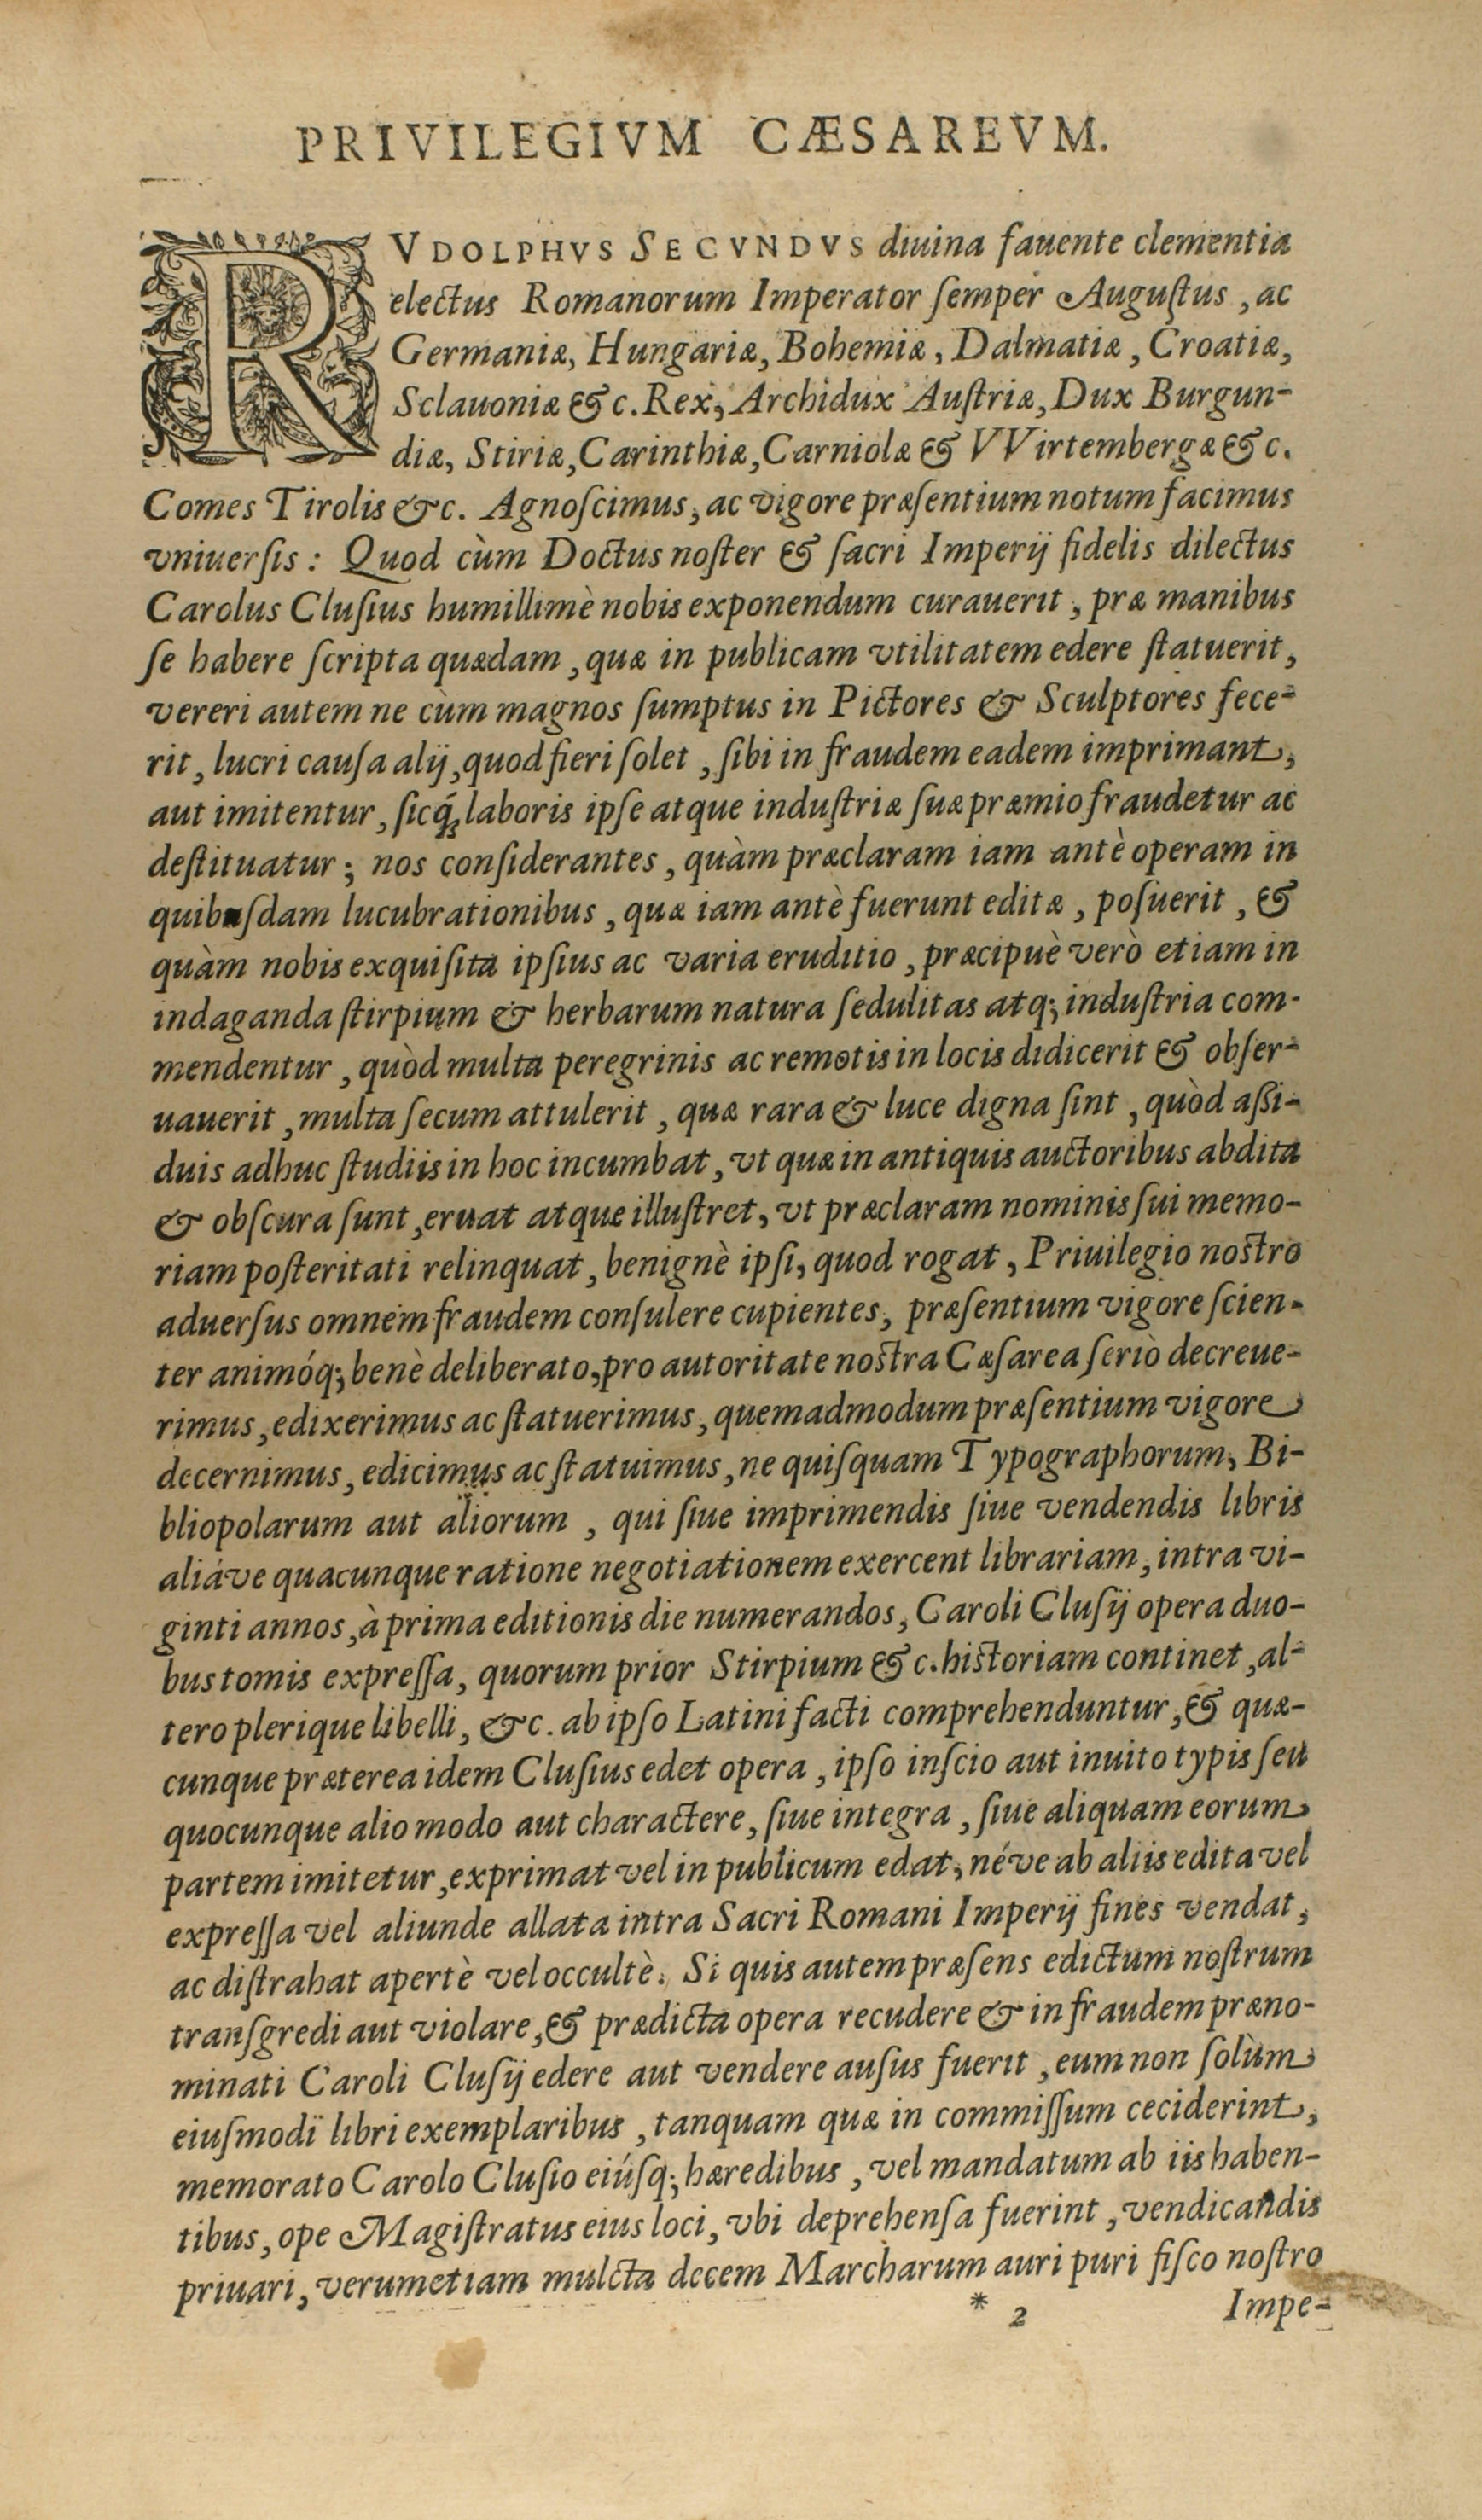 PRIVILEGIVM CÆSAREVM.
RVDOLPHVS SECVNDVS diuina fauente clementia
electus Romanorum Imperator ſemper Auguſtus, ac
Germaniæ, Hungariæ, Bohemiæ, Dalmatiæ, Croatiæ,
Sclauoniæ &c. Rex, Archidux Auſtriæ, Dux Burgun-
diæ, Stiriæ, Carinthiæ, Carniolæ & VVirtembergæ &c.
Comes Tirolis &c. Agnoſcimus, ac vigore præſentium notum facimus
vniuerſis: Quod cùm Doctus noſter & ſacri Imperij fidelis dilectus
Carolus Cluſius humillimè nobis exponendum curauerit, præ manibus
ſe habere ſcripta quædam, quæ in publicam vtilitatem edere ſtatuerit,
vereri autem ne cùm magnos ſumptus in Pictores & Sculptores fece-
rit, lucri cauſa alij, quod fieri ſolet, ſibi in fraudem eadem imprimant,
aut imitentur, ſicq́; laboris ipſe atque induſtriæ ſuæ præmio fraudetur ac
deſtituatur; nos conſiderantes, quàm præclaram iam antè operam in
quibuſdam lucubrationibus, quæ iam antè fuerunt editæ, poſuerit, &
quàm nobis exquiſita ipſius ac varia eruditio, præcipuè verò etiam in
indaganda ſtirpium & herbarum natura ſedulitas atq; induſtria com-
mendentur, quòd multa peregrinis ac remotis in locis didicerit & obſer-
uauerit, multa ſecum attulerit, quæ rara & luce digna ſint, quòd aſſi-
duis adhuc ſtudiis in hoc incumbat, vt quæ in antiquis auctoribus abdita
& obſcura ſunt, eruat atque illuſtret, vt præclaram nominis ſui memo-
riam poſteritati relinquat, benignè ipſi, quod rogat, Priuilegio noſtro
aduerſus omnem fraudem conſulere cupientes, præſentium vigore ſcien-
ter animóq; benè deliberato, pro autoritate noſtra Cæſarea ſeriò decreue-
rimus, edixerimus ac ſtatuerimus, quemadmodum præſentium vigore
decernimus, edicimus ac ſtatuimus, ne quiſquam Typographorum, Bi-
bliopolarum aut aliorum, qui ſiue imprimendis ſiue vendendis libris
aliáve quacunque ratione negotiationem exercent librariam, intra vi-
ginti annos, à prima editionis die numerandos, Caroli Cluſij opera duo-
bus tomis expreſſa, quorum prior Stirpium &c. hiſtoriam continet, al-
tero plerique libelli, &c. ab ipſo Latini facti comprehenduntur, & quæ-
cunque præterea idem Cluſius edet opera, ipſo inſcio aut inuito typis ſeu
quocunque alio modo aut charactere, ſiue integra, ſiue aliquam eorum
partem imitetur, exprimat vel in publicum edat, néve ab aliis edita vel
expreſſa vel aliunde allata intra Sacri Romani Imperij fines vendat,
ac diſtrahat apertè vel occultè. Si quis autem præſens edictum noſtrum
tranſgredi aut violare, & prædicta opera recudere & in fraudem præno-
minati Caroli Cluſij edere aut vendere auſus fuerit, eum non ſolùm
eiuſmodi libri exemplaribus, tanquam quæ in commiſſum ceciderint,
memorato Carolo Cluſio eiúſq; hæredibus, vel mandatum ab iis haben-
tibus, ope Magiſtratus eius loci, vbi deprehenſa fuerint, vendicandis
priuari, verumetiam mulcta decem Marcharum auri puri fiſco noſtro
* 2 Impe-